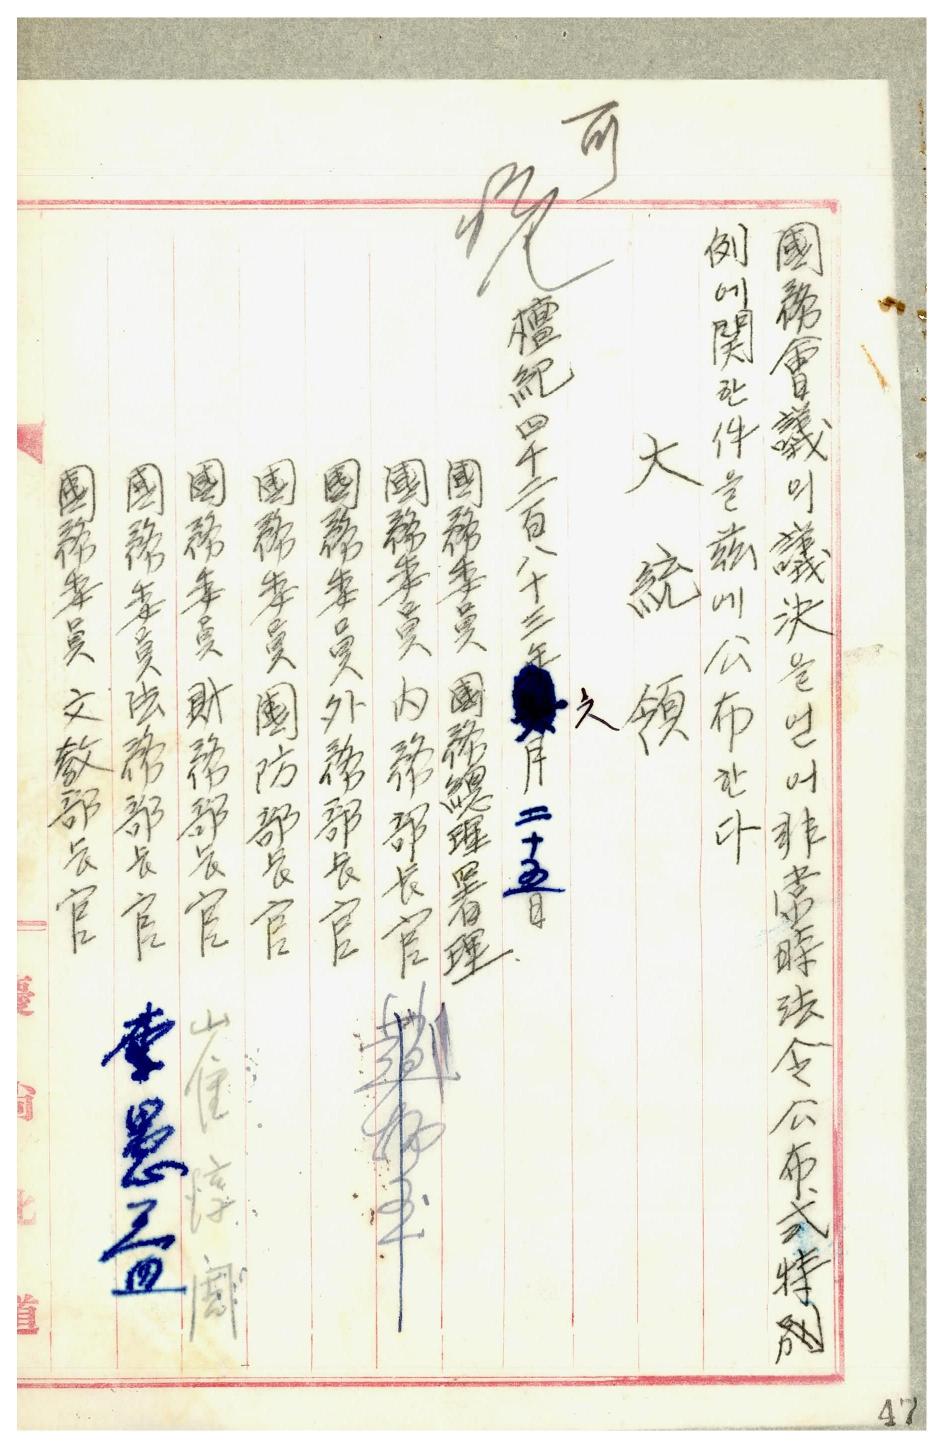 國務會議의 議決을 얻어 非常時法令公布式特別
例에 関한 件을 玆에 公布한다
大統領
可
檀紀四千二百八十三年 六月二十五日
國務委員 國務總理署理
國務委員 內務部長官
國務委員 外務部長官
國務委員 國防部長官
國務委員 財務部長官 崔淳周
國務委員 法務部長官 李愚益
國務委員 文敎部長官
慶尙北道
47